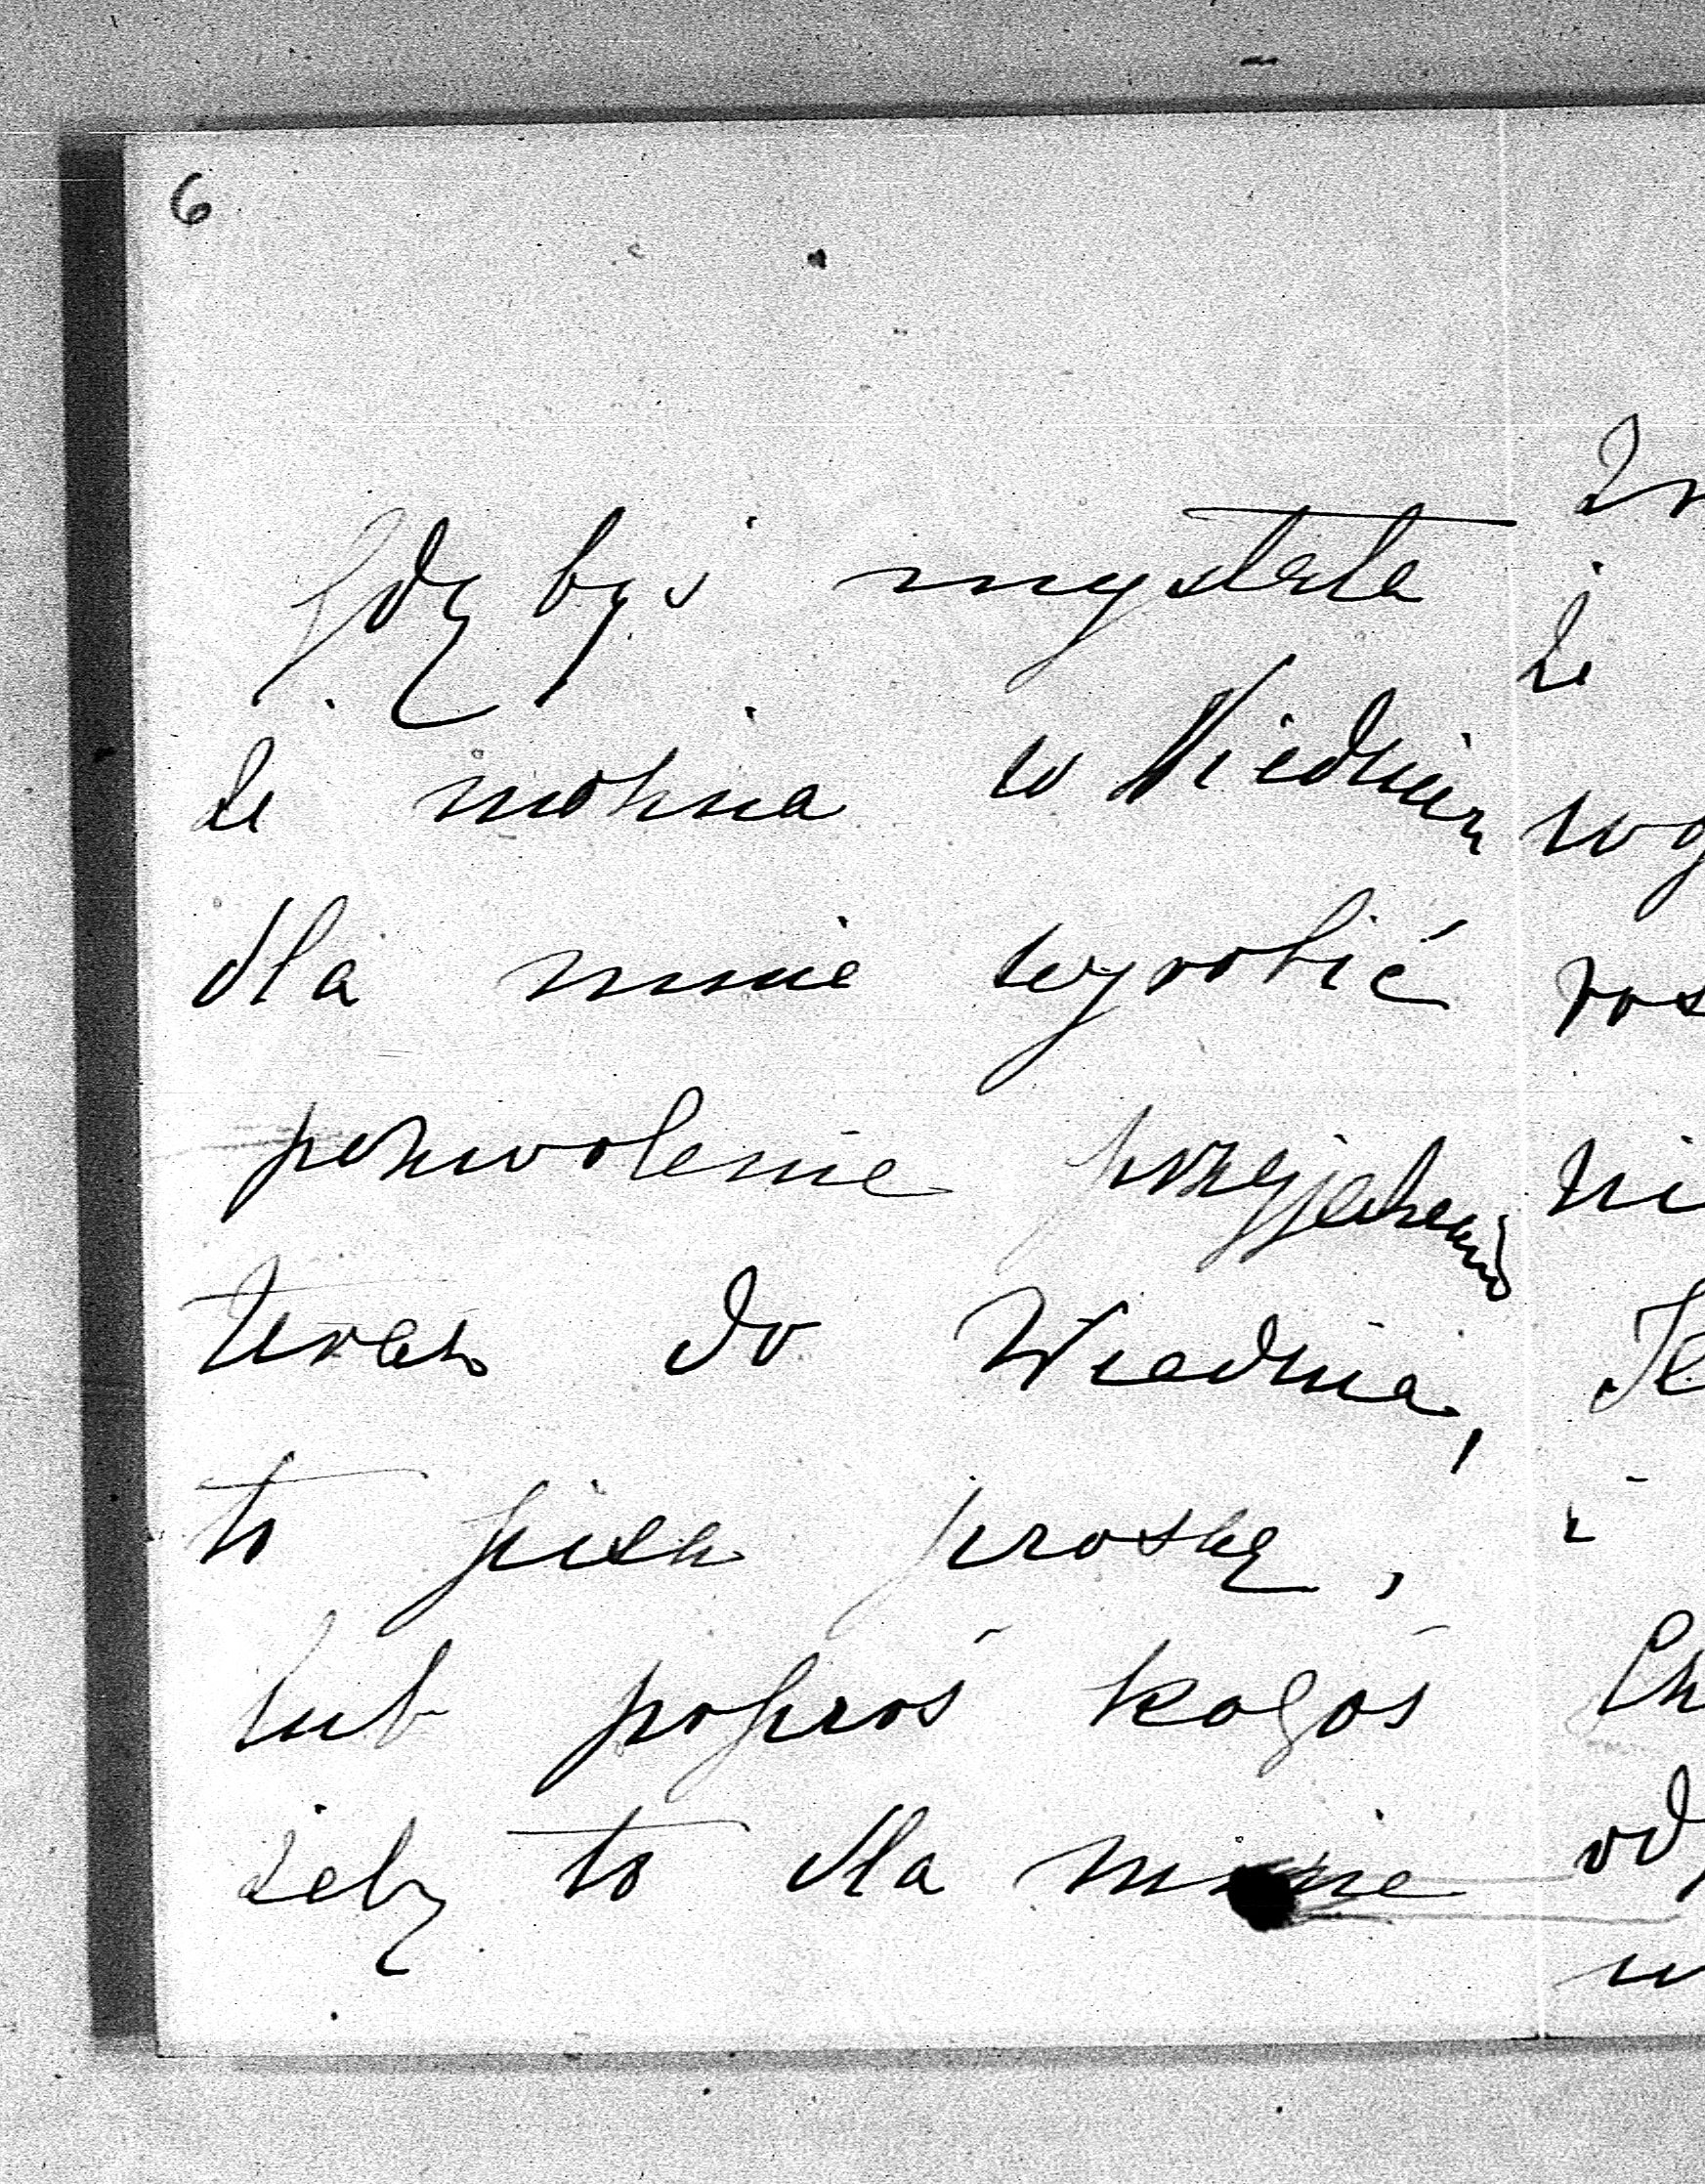 6
Gdybyś myślała
że można w Wiedniu
dla mnie wyrobić
pozwolenie przyjechania
teraz do Wiednia,
to pisz proszę,
lub poproś kogoś
żeby to dla mnie
że